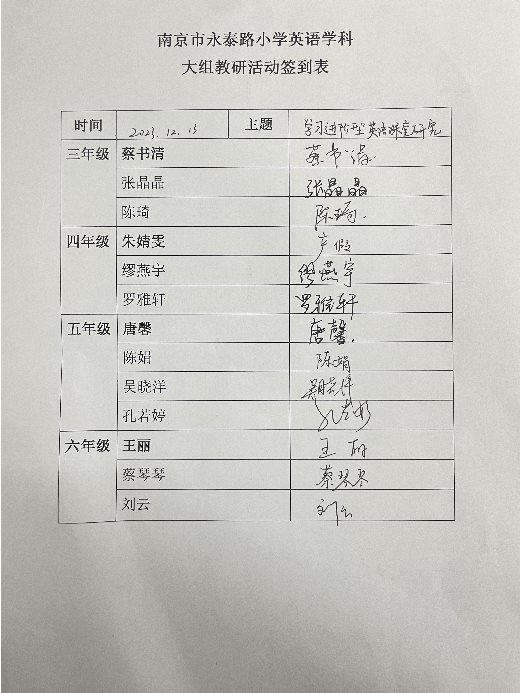 南京市永泰路小学英语学科
大组教研活动签到表
时间 2023.12.13 主题 学习进阶型英语课堂研究
三年级 蔡书清 蔡书清
张晶晶 张晶晶
陈琦 陈琦
四年级 朱婧雯 产假
缪燕宇 缪燕宇
罗雅轩 罗雅轩
五年级 唐馨 唐馨
陈娟 陈娟
吴晓洋 吴晓洋
孔若婷 孔若婷
六年级 王丽 王丽
蔡琴琴 蔡琴琴
刘云 刘云